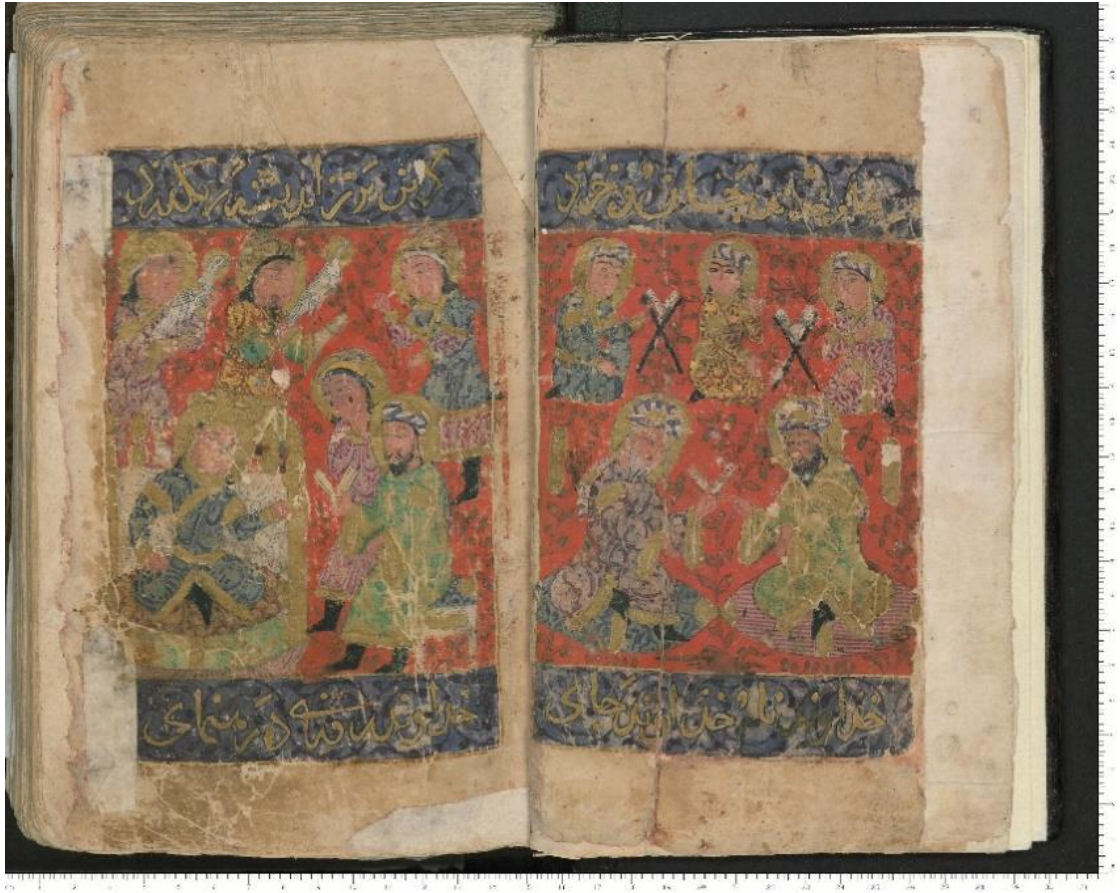 بنام خداوند جان و خرد
کزین برتر اندیشه برنگذرد
خداوند نام و خداوند جای
خداوند روزی ده رهنمای